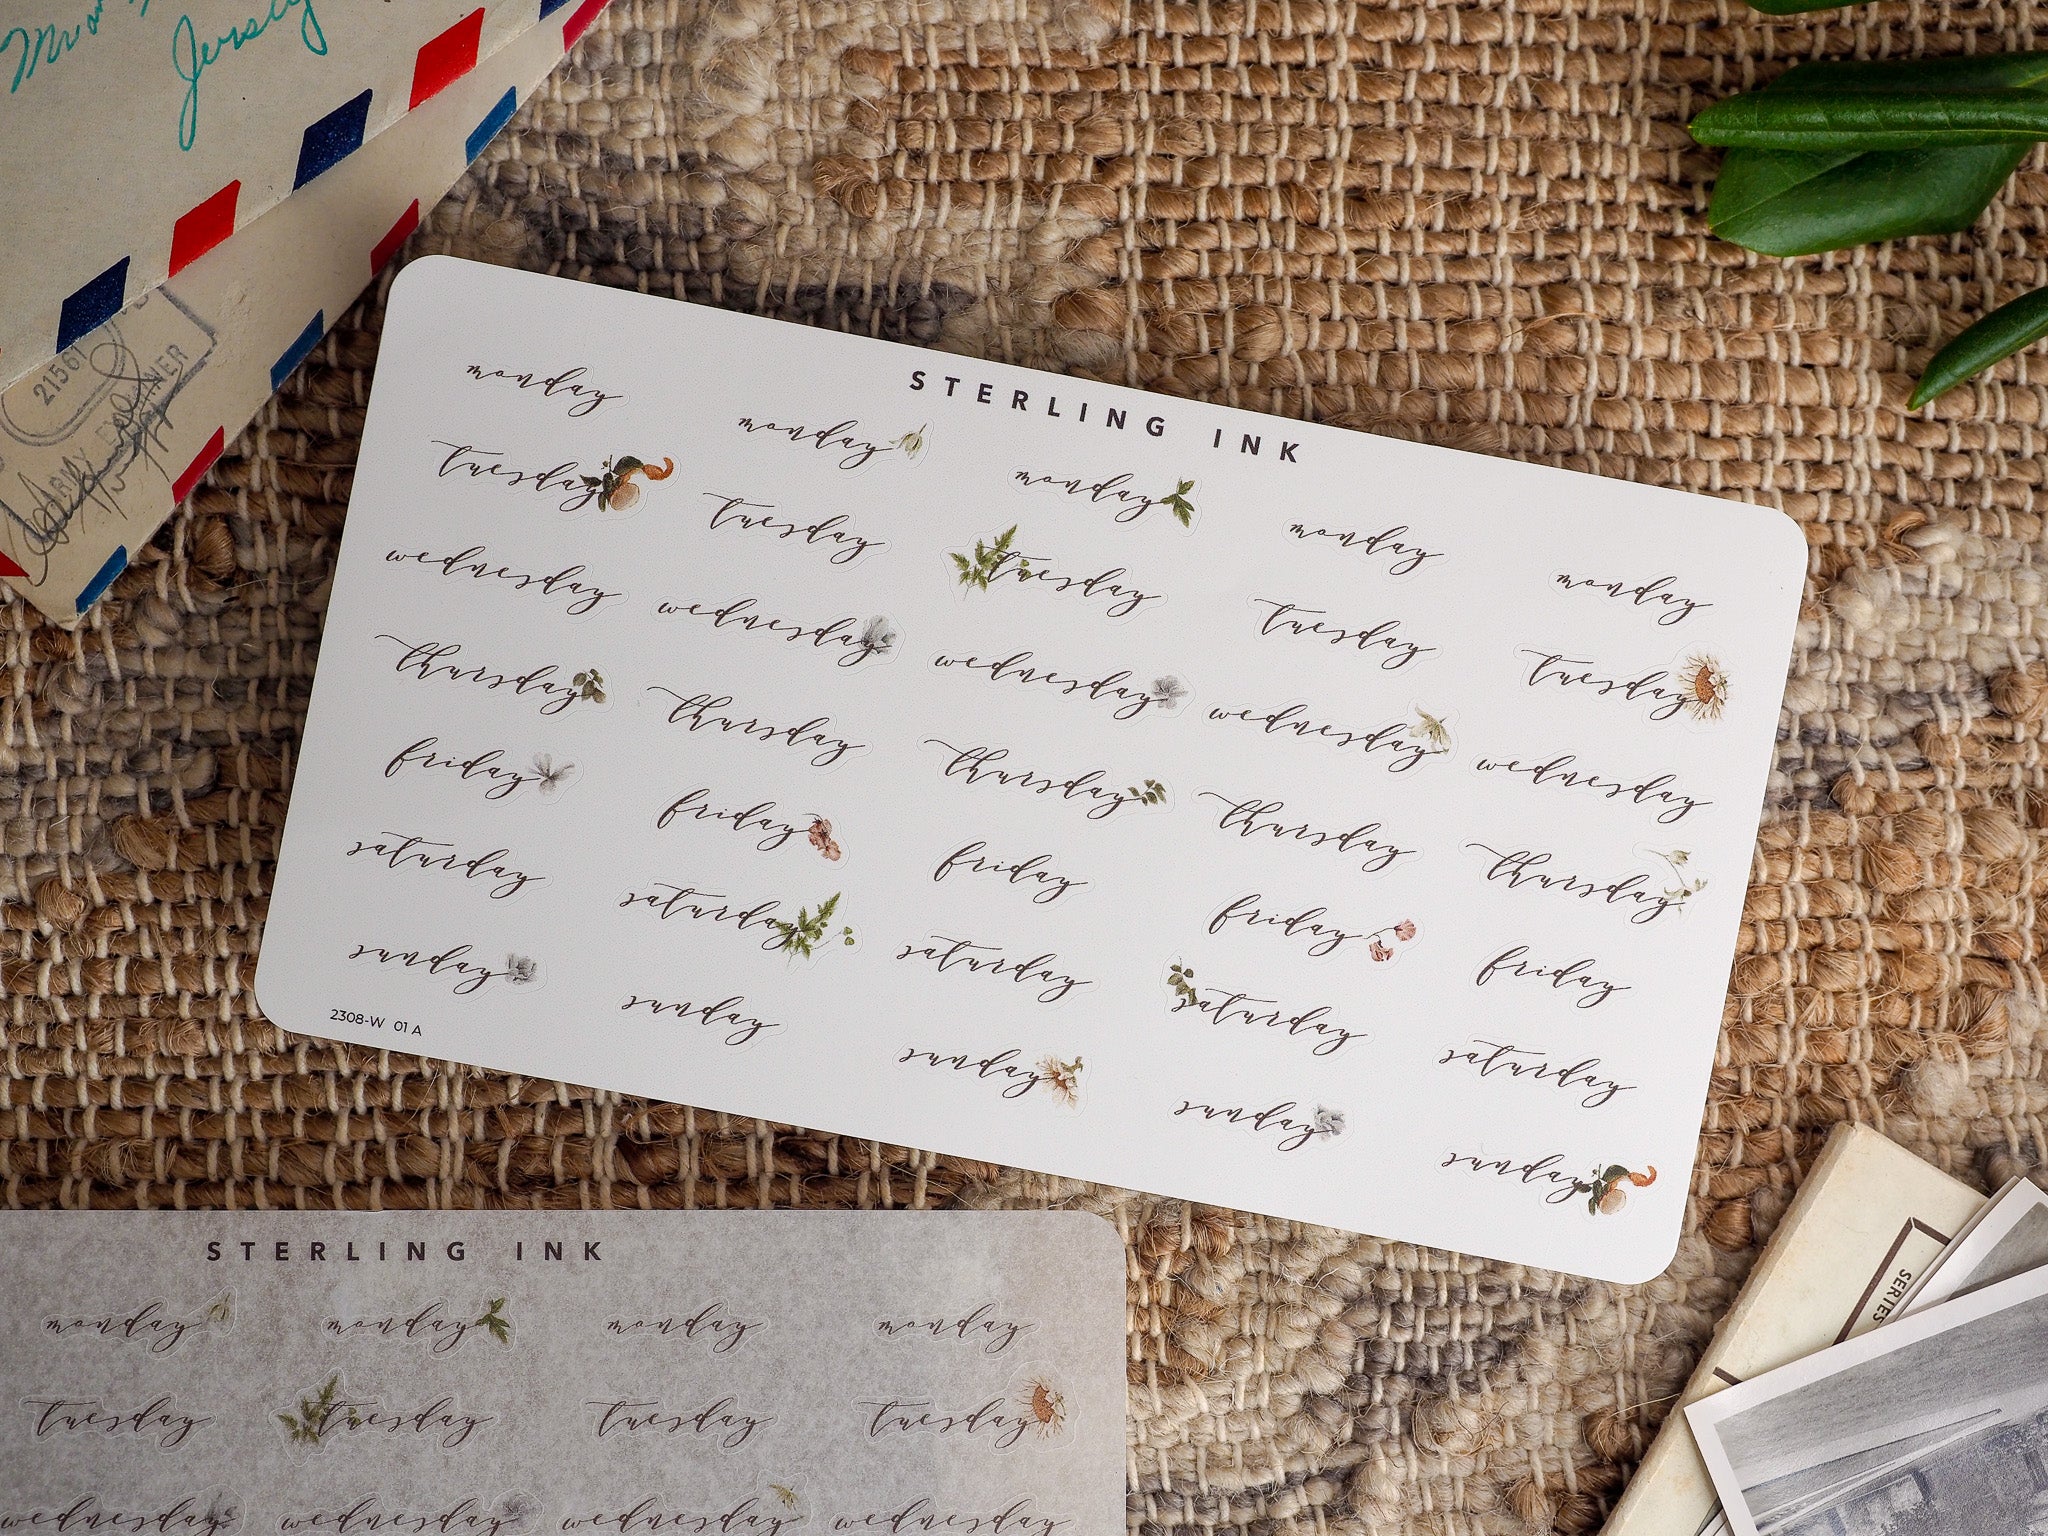 Jersey
21561
EXAMINER
STERLING INK
monday monday monday monday monday
tuesday tuesday tuesday tuesday tuesday
wednesday wednesday wednesday wednesday wednesday
thursday thursday thursday thursday thursday
friday friday friday friday friday
saturday saturday saturday saturday saturday
sunday sunday sunday sunday sunday
2308-W 01 A
STERLING INK
monday monday monday monday
tuesday tuesday tuesday tuesday
wednesday wednesday wednesday wednesday
SERIES